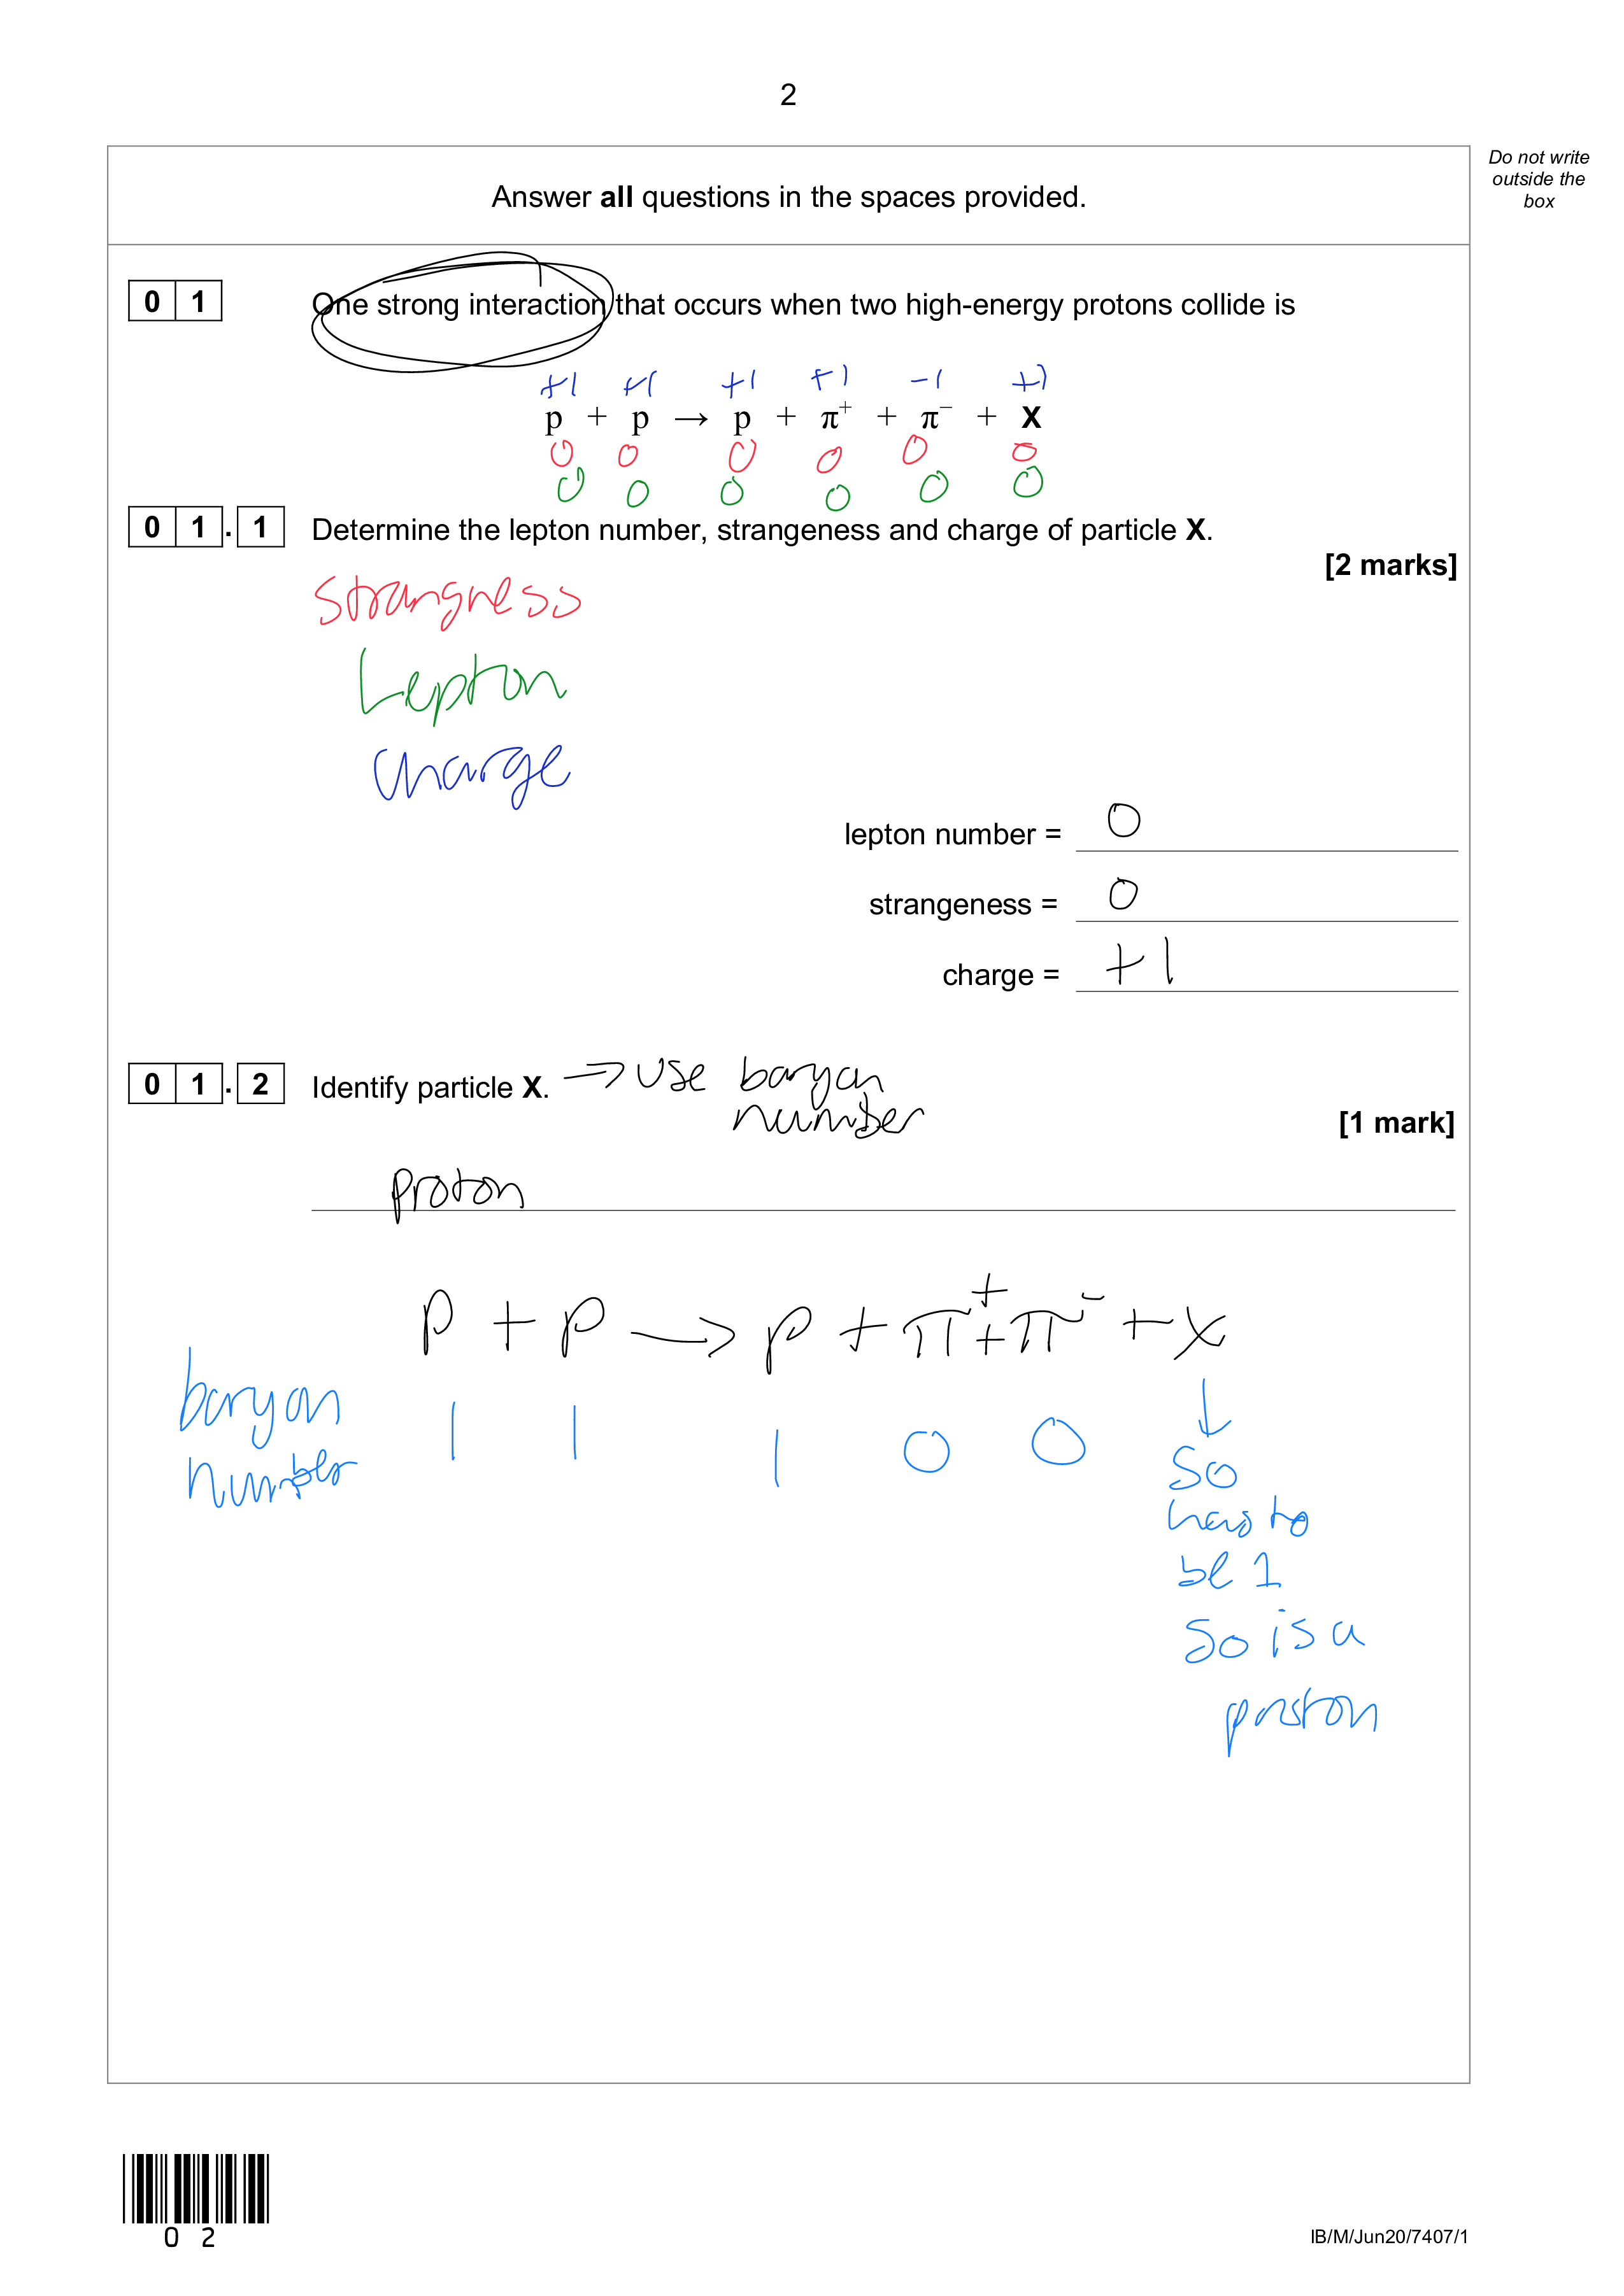 2
Do not write
outside the
box
Answer all questions in the spaces provided.
0 1 One strong interaction that occurs when two high-energy protons collide is
+1 +1 +1 +1 -1 +1
p + p → p + π⁺ + π⁻ + X
0 0 0 0 0 0
0 0 0 0 0 0
0 1 . 1 Determine the lepton number, strangeness and charge of particle X.
[2 marks]
Strangness
Lepton
Charge
lepton number = 0
strangeness = 0
charge = +1
0 1 . 2 Identify particle X. → use baryon
number
[1 mark]
proton
p + p → p + π⁺ + π⁻ + x
baryon
number
1 1 1 0 0
↓
so
has to
be 1
so is a
proton
0 2
IB/M/Jun20/7407/1